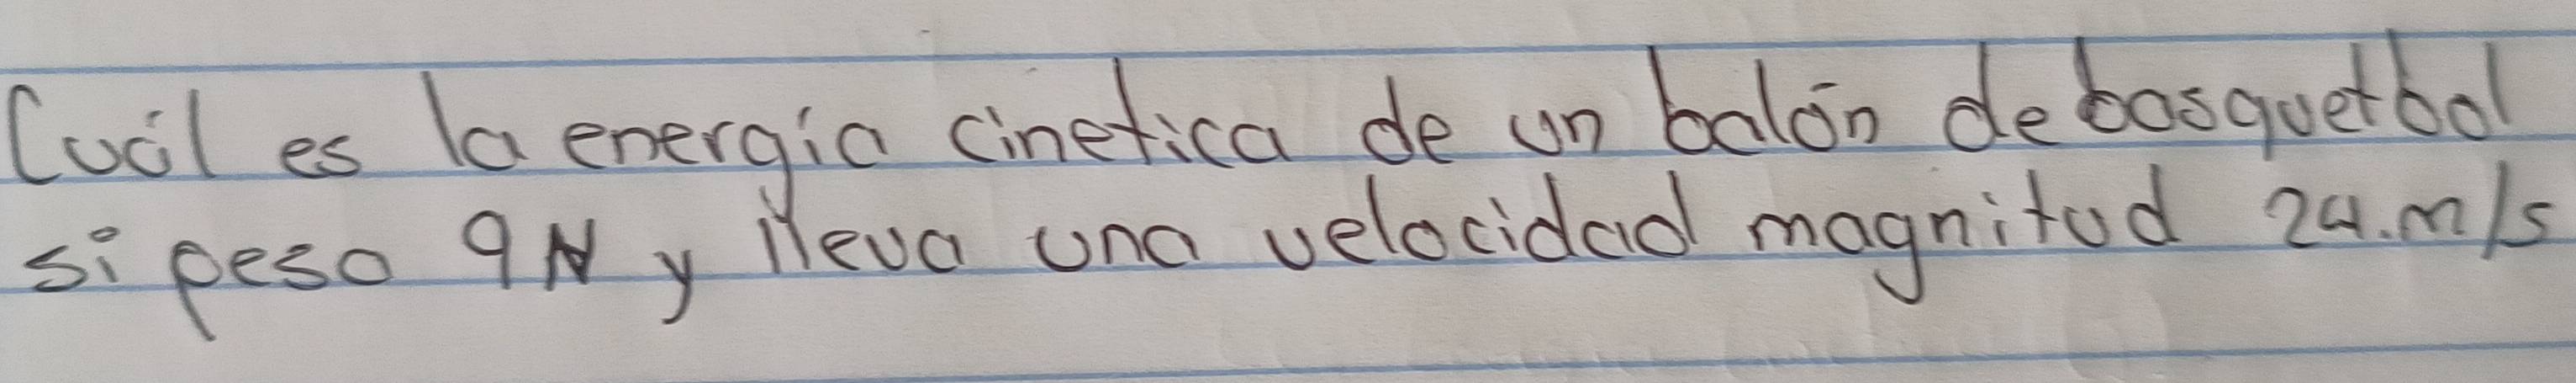 Cuál es la energía cinetica de un balón de basquetbol
si peso 9N y lleva una velocidad magnitud 24.m/s